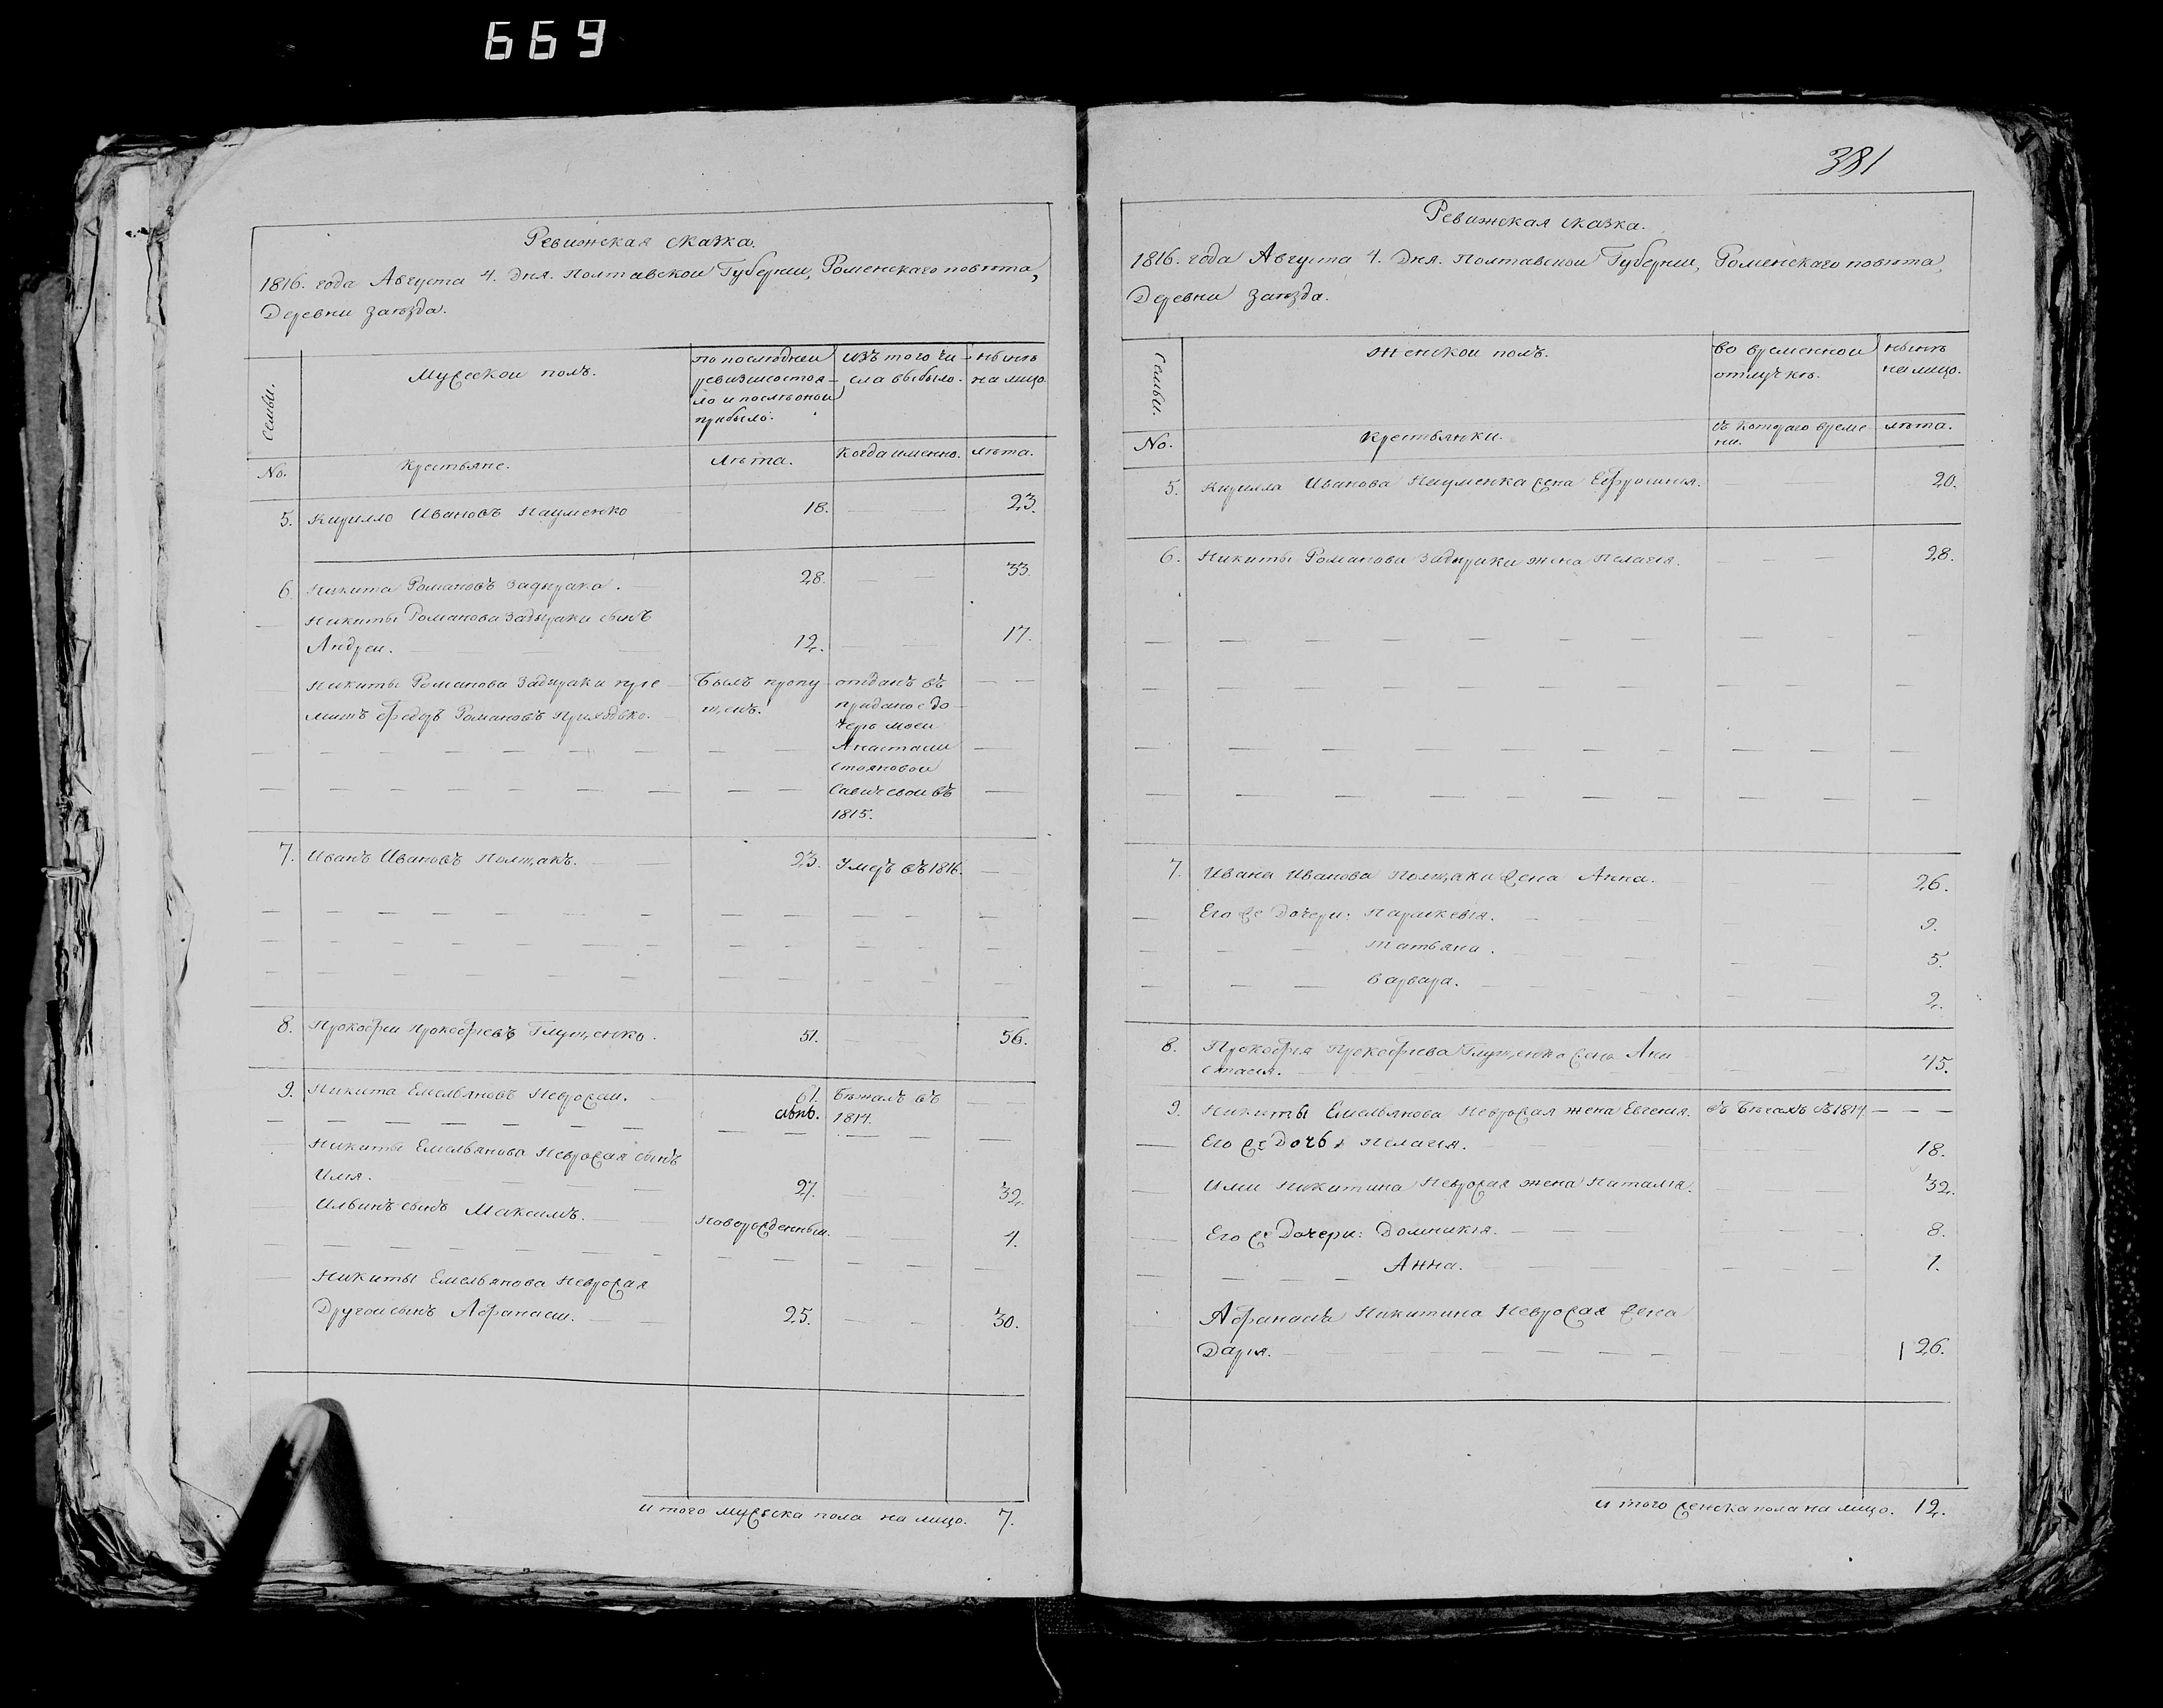 669
381
Ревижская сказка.
1816. года Августа 4. Дня. Полтавской Губернии, Роменскаго повѣта,
Деревни Заѣзда.
семьи.
Мужеской полъ.
по последней
ревизіи состоя-
ло и послѣ оной
прибыло.
изъ того чи-
сла выбыло.
нынѣ
на лицо.
No.
Крестьяне.
Лѣта.
Когда именно.
лѣта.
5. Кирилло Ивановъ Науменко 18. 23.
6. Никита Романовъ Задирака. 28. 33.
Никиты Романова Задираки сынъ
Андрей. 12. 17.
Никиты Романова Задираки пле- Былъ пропу- отданъ въ
мяшъ Федоръ Романовъ Приходько. щенъ. приданое до-
черѣ моей
Анастасіи
Стояновой
Савичевой въ
1815.
7. Иванъ Ивановъ Полщакъ. 23. Умеръ въ 1816.
8. Прокофій Прокофіевъ Глущенко. 51. 56.
9. Никита Емельяновъ Неврожай. 61. Бѣжалъ въ
1814.
Никиты Емельянова Неврожая сынъ
Илія. 27. 32.
Ильинъ сынъ Максимъ. Новорожденный. 4.
Никиты Емельянова Неврожая
Другой сынъ Афанасій. 25. 30.
Итого мужеска пола на лицо. 7.
Ревижская сказка.
1816. года Августа 4. Дня. Полтавской Губернии, Роменскаго повѣта,
Деревни Заѣзда.
Семьи.
Женской полъ.
во временной
отлучкѣ.
нынѣ
на лицо.
No.
Крестьянки.
съ котораго време-
ни.
лѣта.
5. Кирилла Иванова Науменка жена Ефросинія. 20.
6. Никиты Романова Задираки жена Пелагія. 28.
7. Ивана Иванова Полщаки жена Анна. 26.
Его же Дочери: Параскевія. 9.
Татьяна. 5.
Варвара. 2.
8. Прокофія Прокофіева Глущенка жена Ана
стасія. 45.
9. Никиты Емельянова Неврожая жена Евгенія. въ Бѣгахъ съ 1814
Его же Дочь Пелагія. 18.
Иліи Никитина Неврожая жена Наталія. 32.
Его же Дочери: Домникія. 8.
Анна. 1.
Афанасія Никитина Неврожая жена
Дарія. 26.
Итого женска пола на лицо. 12.